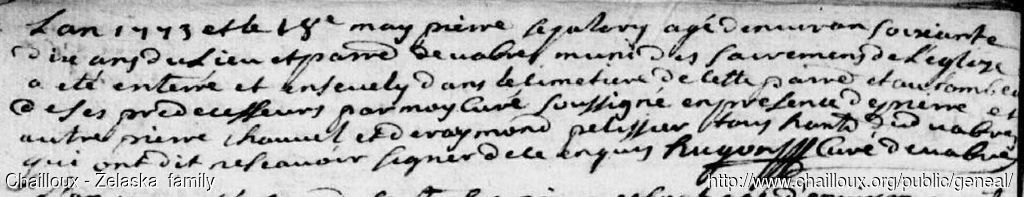 L'an 1773 et le 18e may pierre sepatory agé denviron soixante
dix ans du Lieu et parre devabres muni des sacremens de l'eglize
a eté enterré et ensevely dans le cimetiere de cette parre et au tombeau
de ses predecesseurs par moy curé soussigné en presence de pierre et
autre pierre chauvel et de raymond pelissier tous habts dud vabres
qui ont dit ne scavoir signer de ce enquis hugon curé devabres
Chailloux - Zelaska family
http://www.chailloux.org/public/geneal/